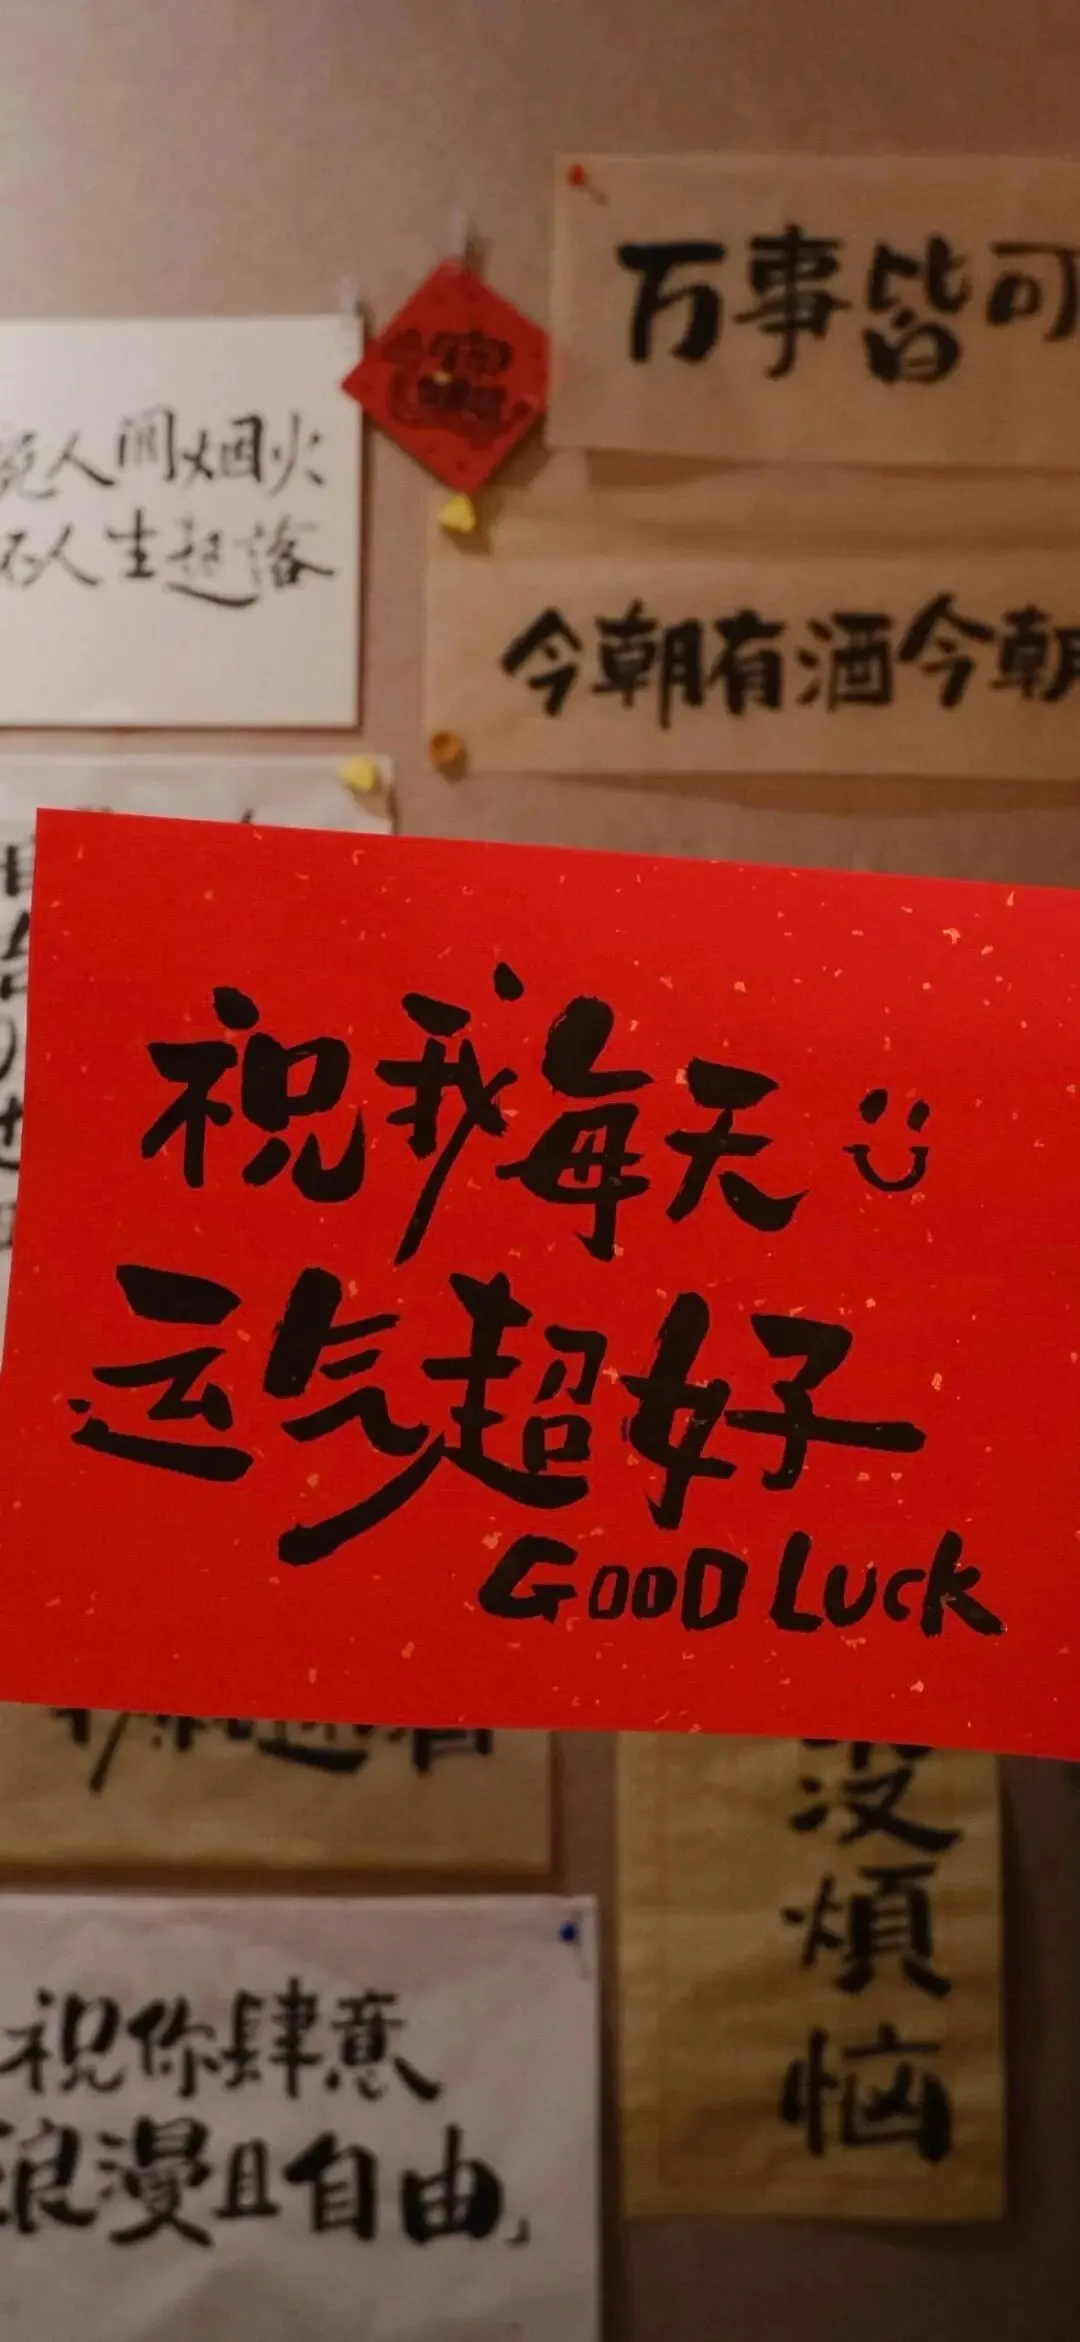 万事皆可
人间烟火
人生起落
今朝有酒今朝
祝我每天
运气超好
GOOD LUCK
没
烦
恼
祝你肆意
浪漫且自由